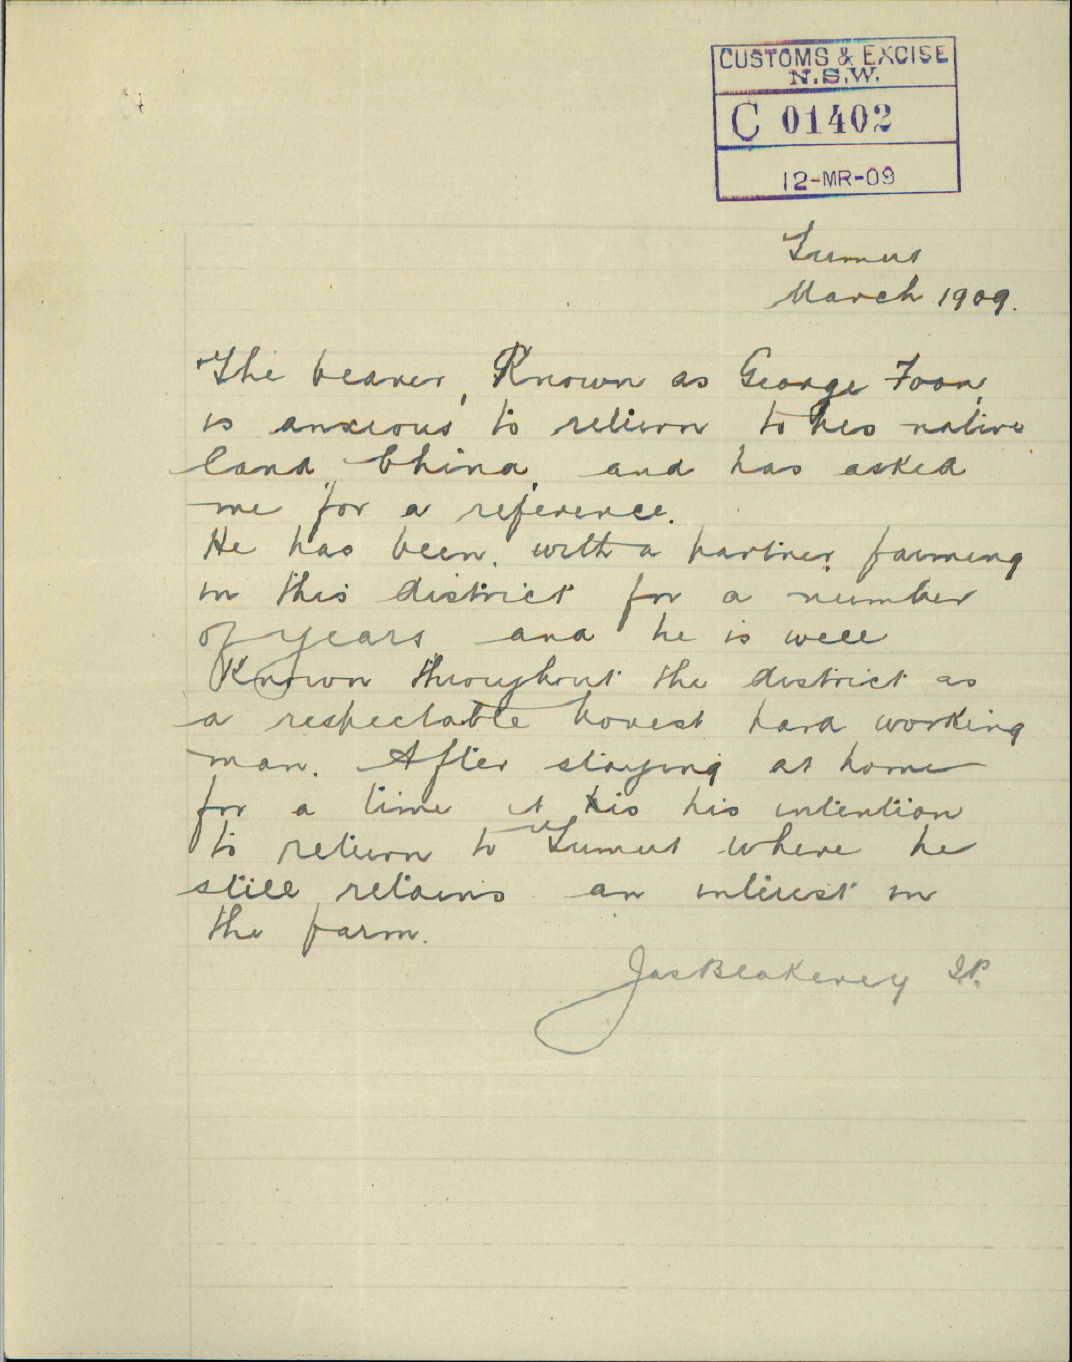 CUSTOMS & EXCISE
N.S.W.
C 01402
12-MR-09
Tumut
March 1909.
The bearer, Known as George Foon,
is anxious to return to his native
land, China, and has asked
me for a reference.
He has been, with a partner, farming
in this district for a number
of years and he is well
Known throughout the district as
a respectable honest hard working
man. After staying at home
for a time it is his intention
to return to Tumut where he
still retains an interest in
the farm.
Jas Blakeney J.P.